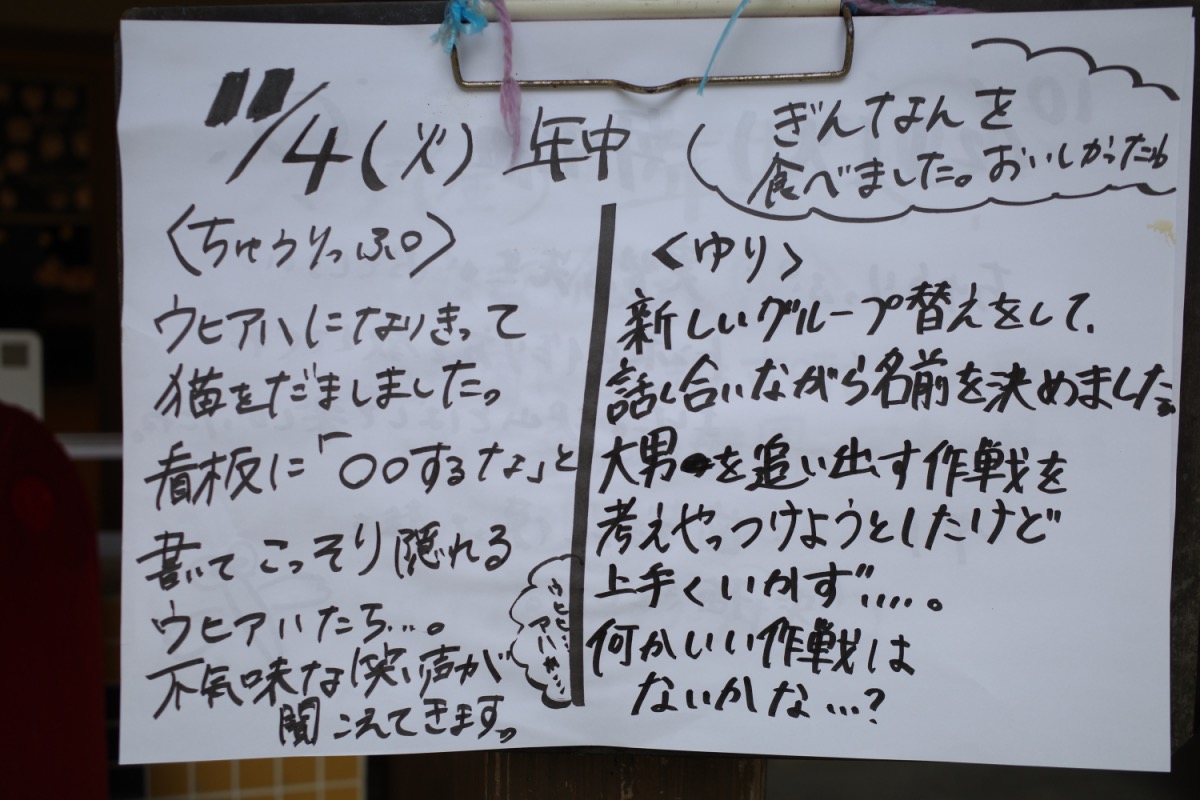 11/4(火) 年中
ぎんなんを
食べました。おいしかったね
〈ちゅうりっぷ〉
ウヒアハになりきって
猫をだましました。
看板に「〇〇するな」と
書いてこっそり隠れる
ウヒアハたち…。
不気味な笑い声が
聞こえてきます。
ウヒヒ…
アハハハッ
〈ゆり〉
新しいグループ替えをして、
話し合いながら名前を決めました。
大男を追い出す作戦を
考えやっつけようとしたけど
上手くいかず…。
何かいい作戦は
ないかな…?